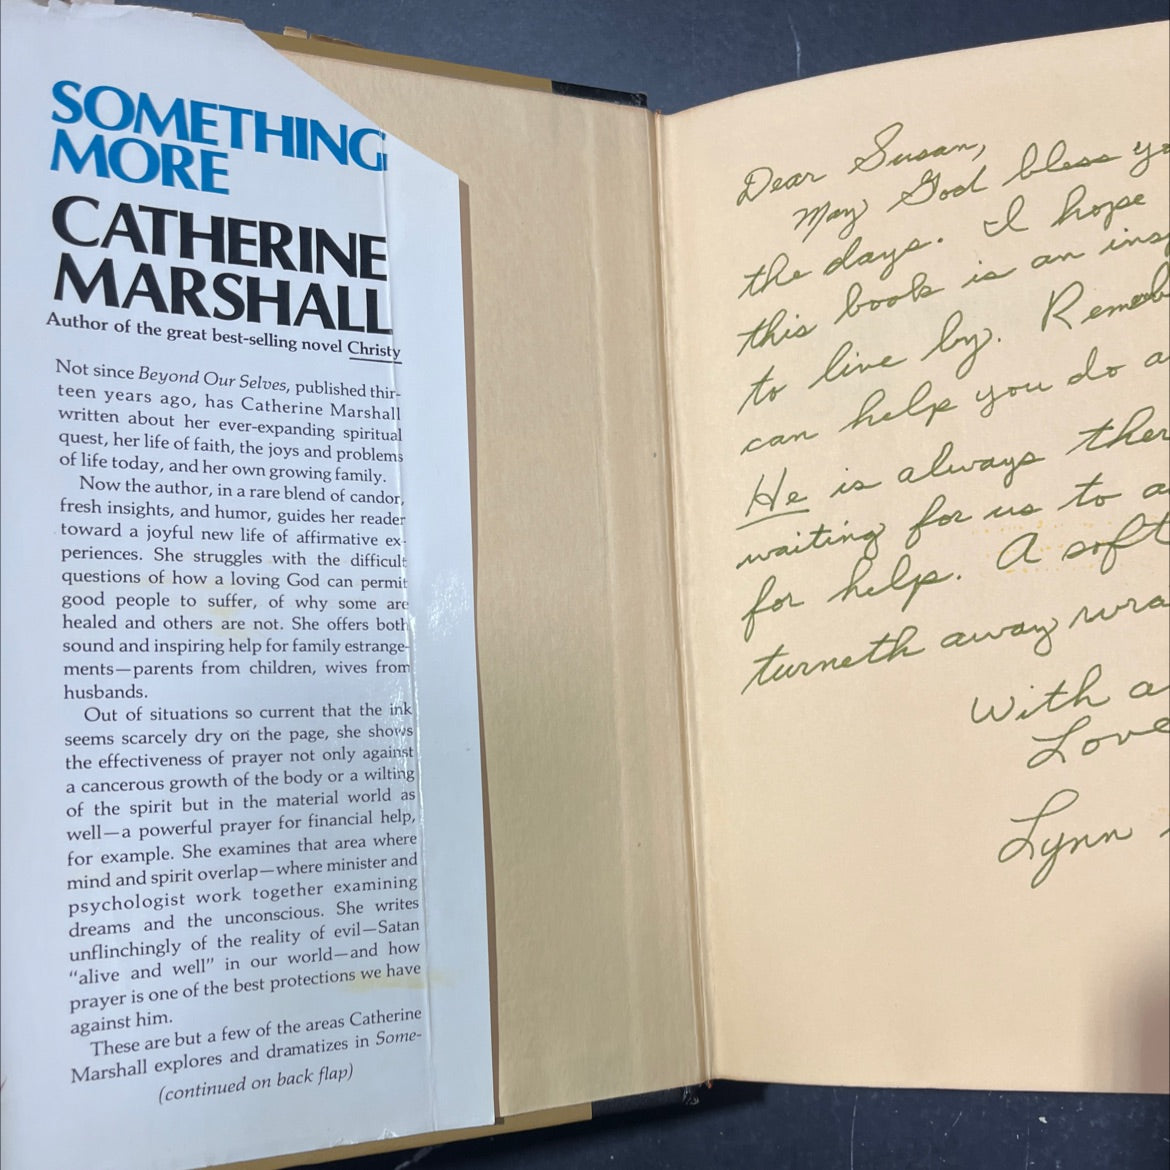 SOMETHING
MORE
CATHERINE
MARSHALL
Author of the great best-selling novel Christy
Not since Beyond Our Selves, published thir-
teen years ago, has Catherine Marshall
written about her ever-expanding spiritual
quest, her life of faith, the joys and problems
of life today, and her own growing family.
Now the author, in a rare blend of candor,
fresh insights, and humor, guides her reader
toward a joyful new life of affirmative ex-
periences. She struggles with the difficult
questions of how a loving God can permit
good people to suffer, of why some are
healed and others are not. She offers both
sound and inspiring help for family estrange-
ments—parents from children, wives from
husbands.
Out of situations so current that the ink
seems scarcely dry on the page, she shows
the effectiveness of prayer not only against
a cancerous growth of the body or a wilting
of the spirit but in the material world as
well—a powerful prayer for financial help,
for example. She examines that area where
mind and spirit overlap—where minister and
psychologist work together examining
dreams and the unconscious. She writes
unflinchingly of the reality of evil—Satan
“alive and well” in our world—and how
prayer is one of the best protections we have
against him.
These are but a few of the areas Catherine
Marshall explores and dramatizes in Some-
(continued on back flap)
Dear Susan,
May God bless yo
the days. I hope
this book is an ins
to live by. Rememb
can help you do a
He is always ther
waiting for us to a
for help. A soft
turneth away wra
With a
Love
Lynn